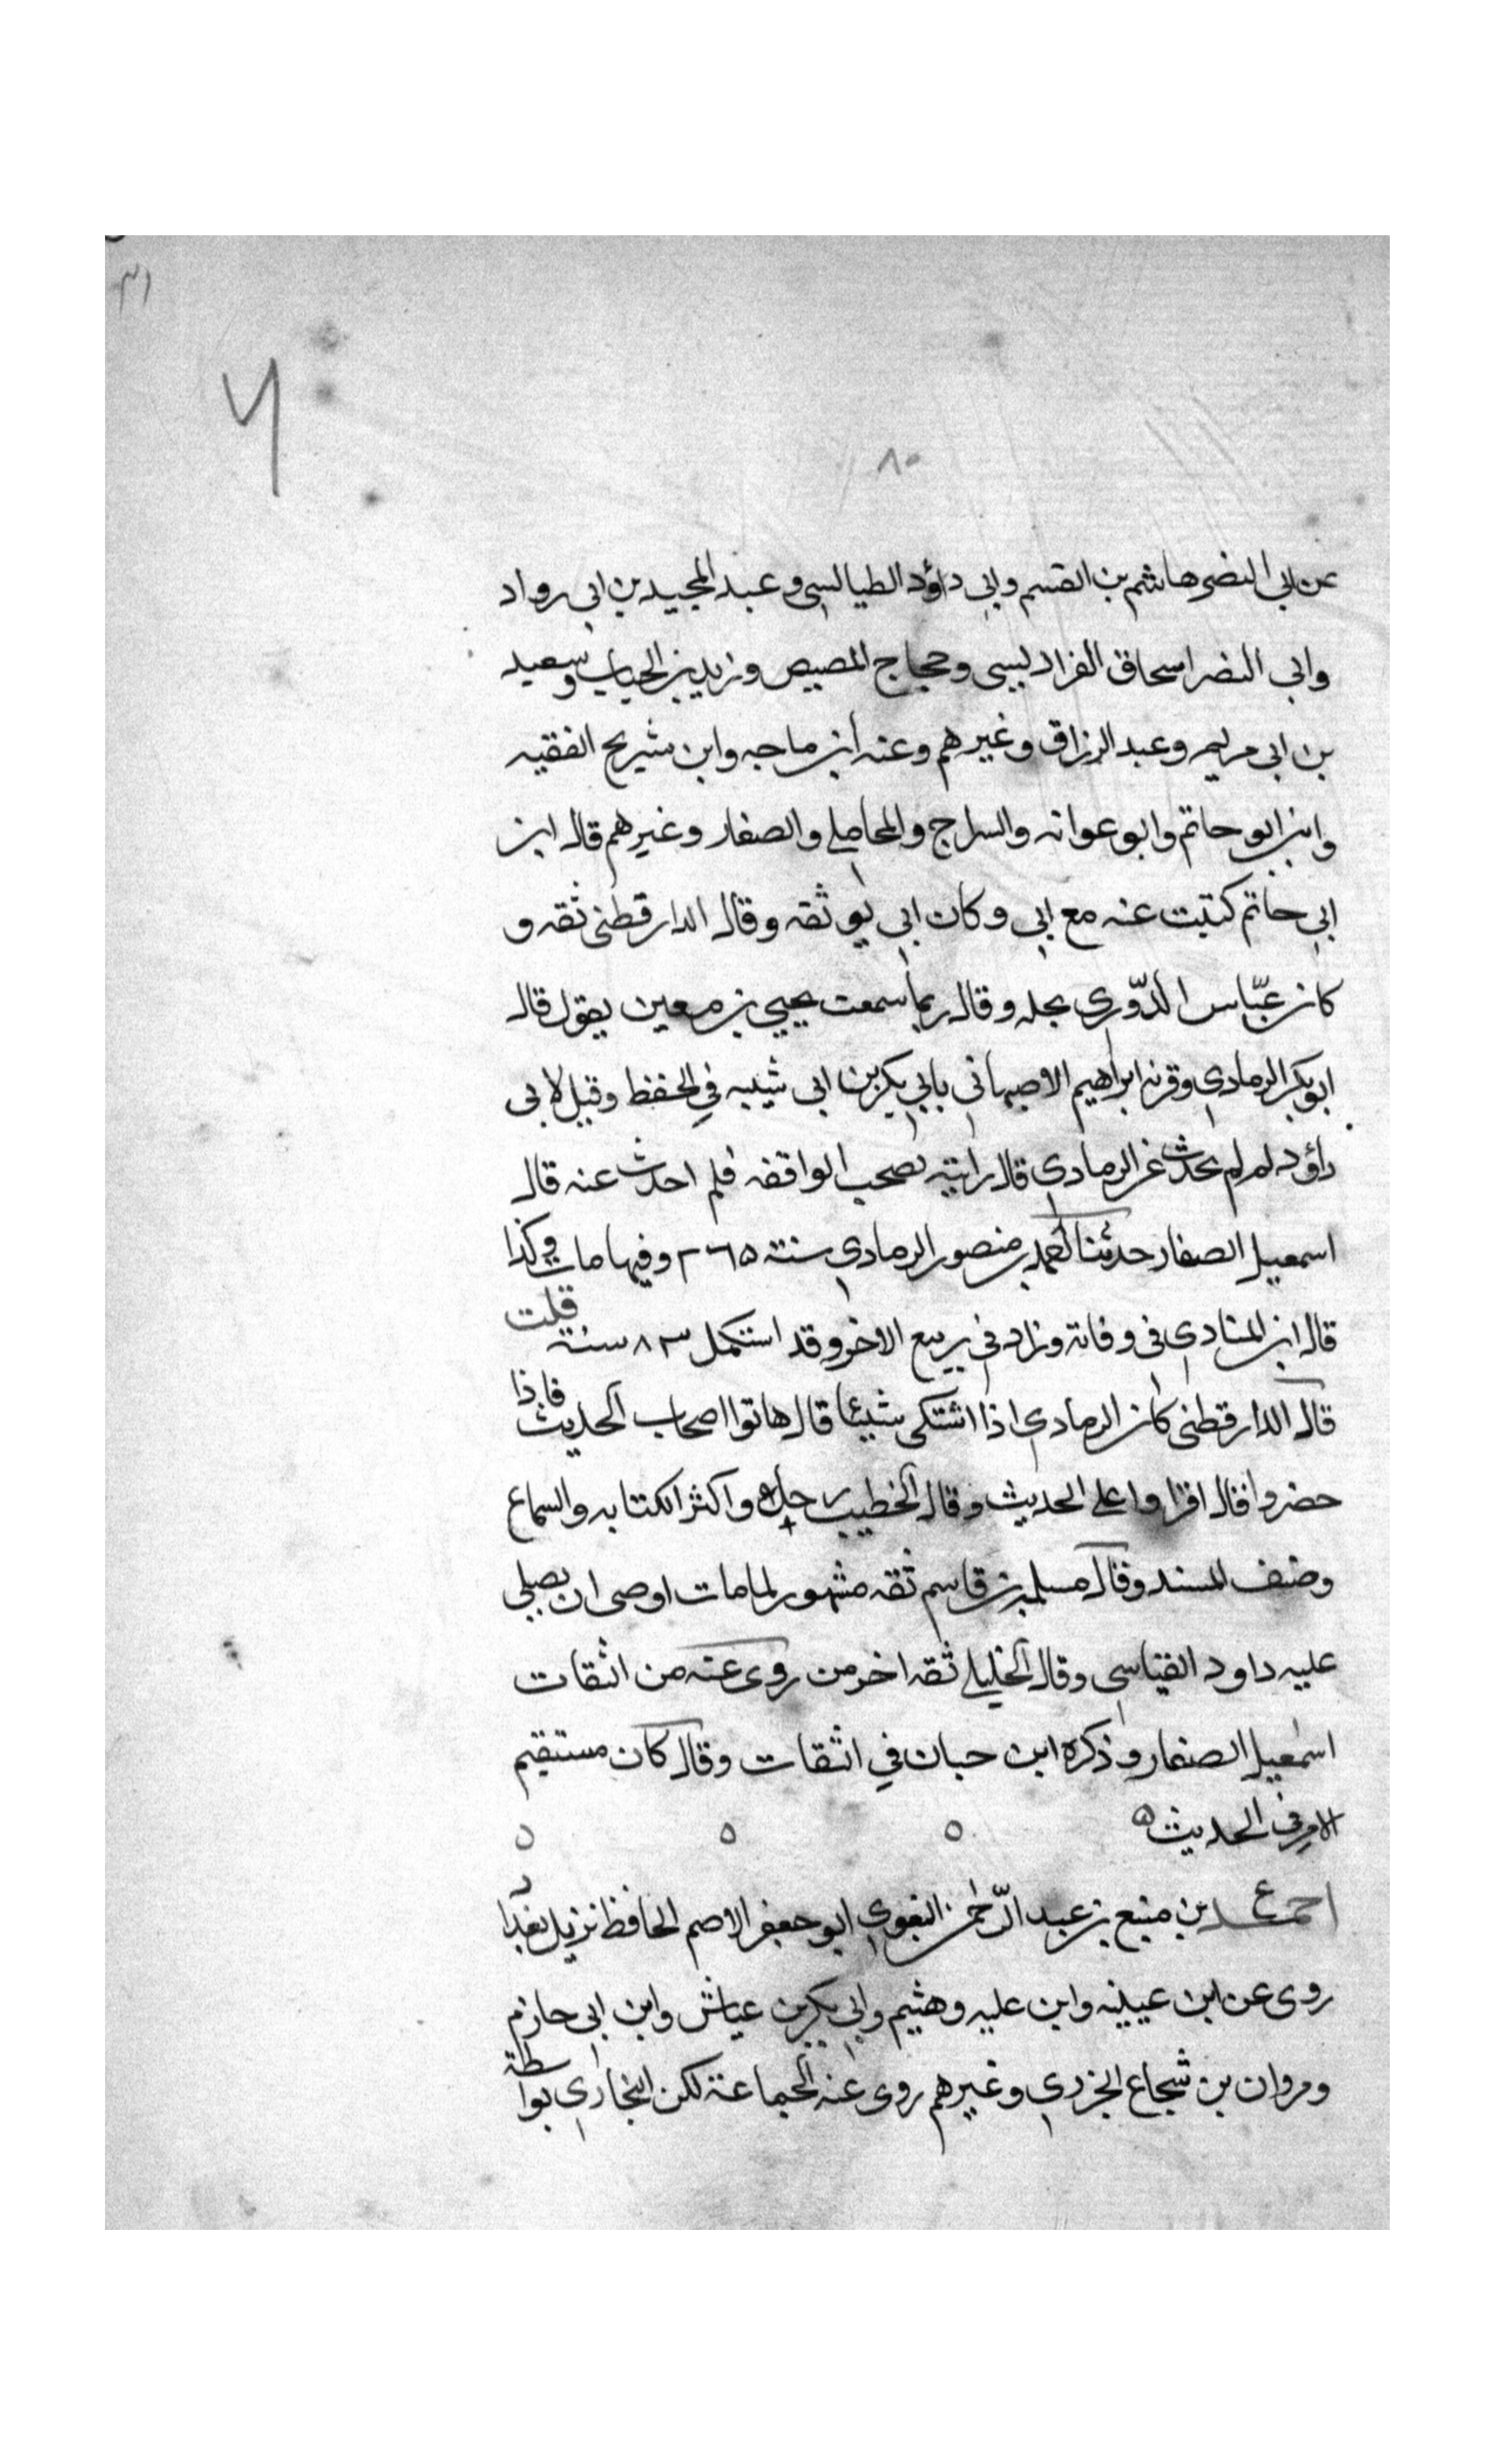 ٨٠
عن ابي النضر هاشم بن القسم وابي داؤد الطيالسي وعبد المجيد بن ابي رواد
وابي النضر اسحاق الفراديسي وحجاج المصيص وزيد بن الحباب وسعيد
بن ابي مريم وعبد الرزاق وغيرهم وعنه ابن ماجه وابن شريح الفقيه
وابن ابو حاتم وابو عوانه والسراج والمحاملي والصفار وغيرهم قال ابن
ابي حاتم كتبت عنه مع ابي وكان ابي يوثقه وقال الدارقطني ثقه و
كان عبّاس الدّوري يجله وقال ربما سمعت يحيي بن معين يقول قال
ابو بكر الرمادي وقرنه ابراهيم الاصبهاني بابي بكر بن ابي شيبه في الحفظ وقيل لابي
داؤد لم لم يحدث عن الرمادي قال رايته يصحب الواقفه فلم احدث عنه قال
اسمعيل الصفار حدثنا احمد بن منصور الرمادي سنة ٢٦٥ وفيها مات وكذا
قال ابن المنادي في وفاته وزاد في ربيع الاخر وقد استكمل ٨٣ سنة قلت
قال الدارقطني كان الرمادي اذا اشتكى شيئا قال هاتوا اصحاب الحديث فاذا
حضروا فقال اقراوا علي الحديث وقال الخطيب رحل واكثر الكتابه والسماع
وصنف المسند وقال مسلمه بن قاسم ثقه مشهور لما مات اوصى ان يصلي
عليه داود القياسي وقال الخليلي ثقه اخر من روى عنه من الثقات
اسمعيل الصفار وذكره ابن حبان في الثقات وقال كان مستقيم
الامر في الحديث ه ه ه ه
احمد ع بن منيع بن عبد الرّحمن البغوي ابو جعفر الاصم الحافظ نزيل بغداد
روى عن ابن عيينه وابن عليه وهشيم وابي بكر بن عياش وابن ابي حازم
ومروان بن شجاع الجزدي وغيرهم روى عنه الجماعة لكن البخاري بواسطة